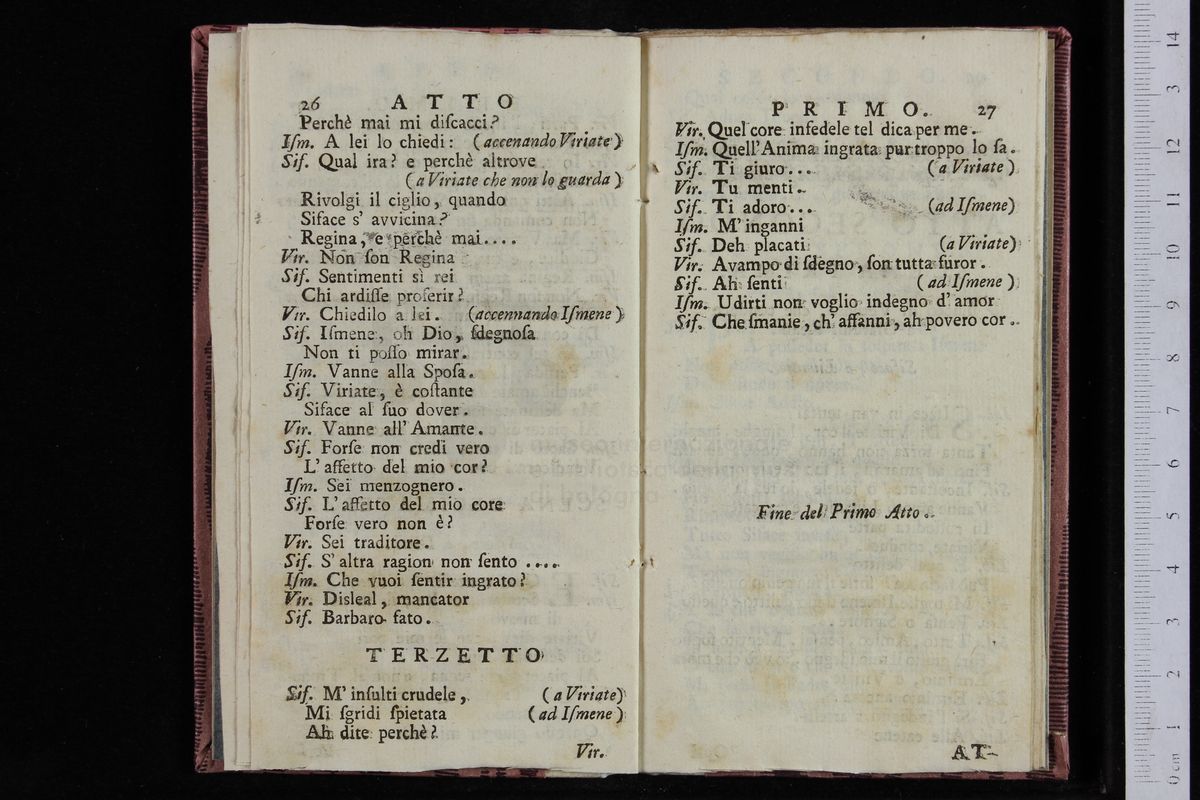 26 ATTO
Perchè mai mi diſcacci?
Iſm. A lei lo chiedi: (accenando Viriate)
Sif. Qual ira? e perchè altrove
(a Viriate che non lo guarda)
Rivolgi il ciglio, quando
Siface s' avvicina?
Regina, e perchè mai....
Vir. Non ſon Regina
Sif. Sentimenti sì rei
Chi ardiſſe proferir?
Vir. Chiedilo a lei. (accennando Iſmene)
Sif. Iſmene, oh Dio, ſdegnoſa
Non ti poſſo mirar.
Iſm. Vanne alla Spoſa.
Sif. Viriate, è coſtante
Siface al ſuo dover.
Vir. Vanne all' Amante.
Sif. Forſe non credi vero
L' affetto del mio cor?
Iſm. Sei menzognero.
Sif. L' affetto del mio core
Forſe vero non è?
Vir. Sei traditore.
Sif. S' altra ragion non ſento ....
Iſm. Che vuoi ſentir ingrato?
Vir. Disleal, mancator
Sif. Barbaro fato.
TERZETTO
Sif. M' inſulti crudele, (a Viriate)
Mi ſgridi ſpietata (ad Iſmene)
Ah dite perchè?
Vir.
PRIMO. 27
Vir. Quel core infedele tel dica per me.
Iſm. Quell' Anima ingrata pur troppo lo ſa.
Sif. Ti giuro... (a Viriate)
Vir. Tu menti.
Sif. Ti adoro... (ad Iſmene)
Iſm. M' inganni
Sif. Deh placati (a Viriate)
Vir. Avampo di ſdegno, ſon tutta furor.
Sif. Ah ſenti (ad Iſmene)
Iſm. Udirti non voglio indegno d' amor
Sif. Che ſmanie, ch' affanni, ah povero cor.
Fine del Primo Atto.
AT-
0 cm 1 2 3 4 5 6 7 8 9 10 11 12 13 14